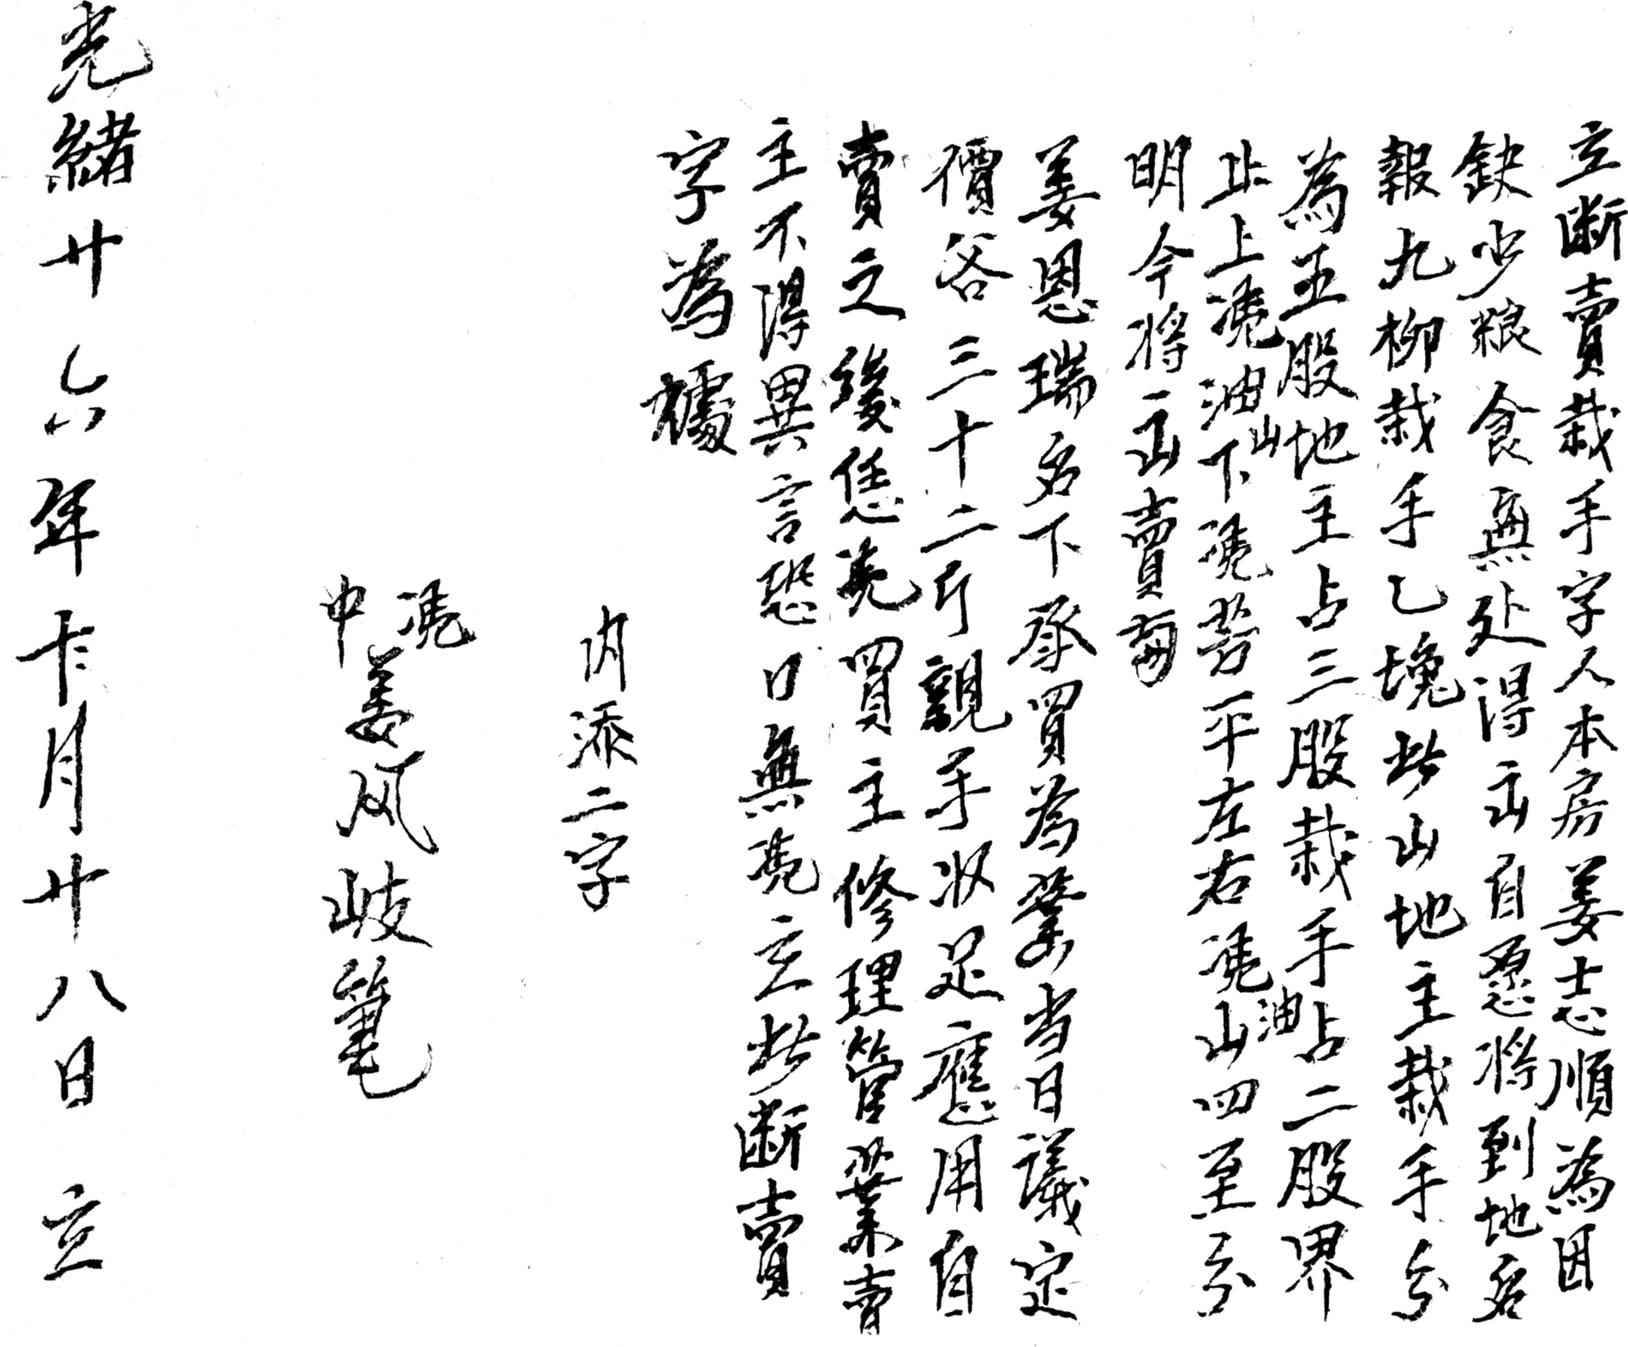 立断賣栽手字人本房姜志順為因
缺少粮食無处得出自愿將到地名
報九柳栽手乙塊此山地主栽手分
為五股地主占三股栽手占二股界
止上凴油山下凴芳平左右凴油山四至分
明今將出賣與
姜恩瑞名下承買為業當日議定
價谷三十二斤親手收足應用自
賣之後恁凴買主修理管業賣
主不得異言恐口無凴立此断賣
字為據
內添二字
凴
中 姜风岐筆
光緒廿六年十二月廿八日 立